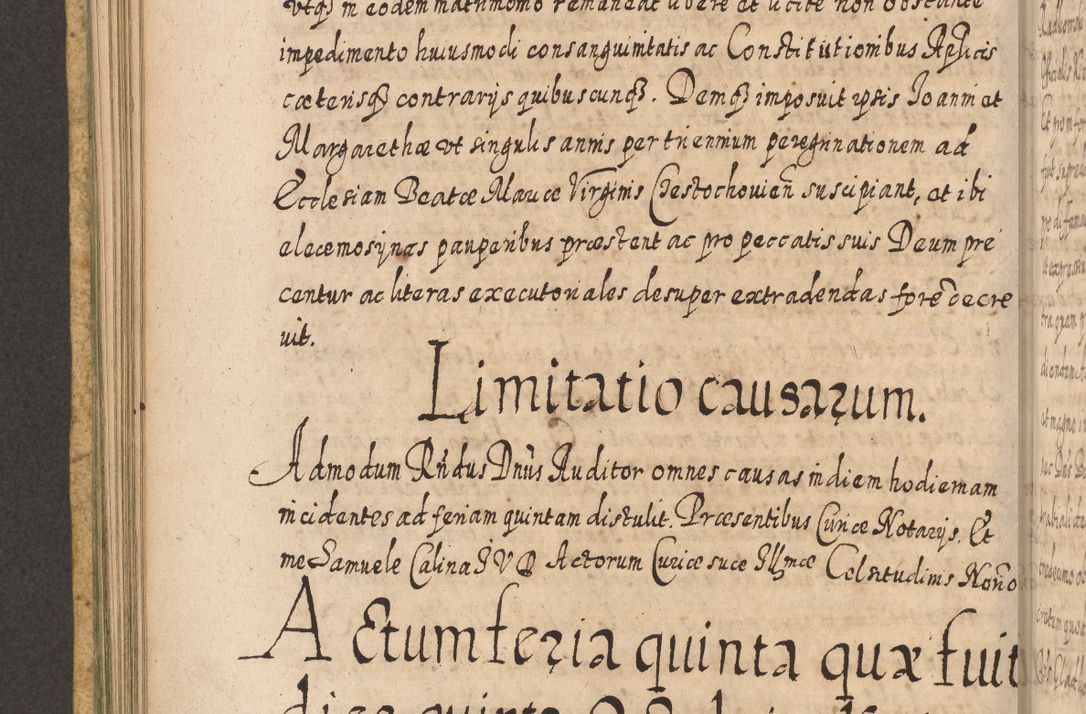 utqꝫ in eodem matrimonio remaneat libere et licite non obstante
impedimento huiusmodi consanguinitatis ac Constitutionibus Aplicis
cæterisqꝫ contrarijs quibuscunqꝫ. Demqꝫ imposuit ipsis Joanni et
Margarethæ vt singulis annis per triennium peregrinationem ad
Ecclesiam Beatæ Mariæ Virginis Czestochouien̄ suscipiant, et ibi
eleemosijnas pauperibus præstent ac pro peccatis suis Deum pre
centur ac literas executoriales desuper extradendas fore decre
uit.
Limitatio causarum.
Admodum Rn̄dus Dnūs Auditor omnes causas in diem hodiernam
incidentes ad feriam quintam distulit. Præsentibus Curiæ Notarijs. Et
me Samuele Calina J V D Actorum Curiæ suæ Illmæ Celsitudinis Nōrio
Actum feria quinta quæ fuit
die quinta